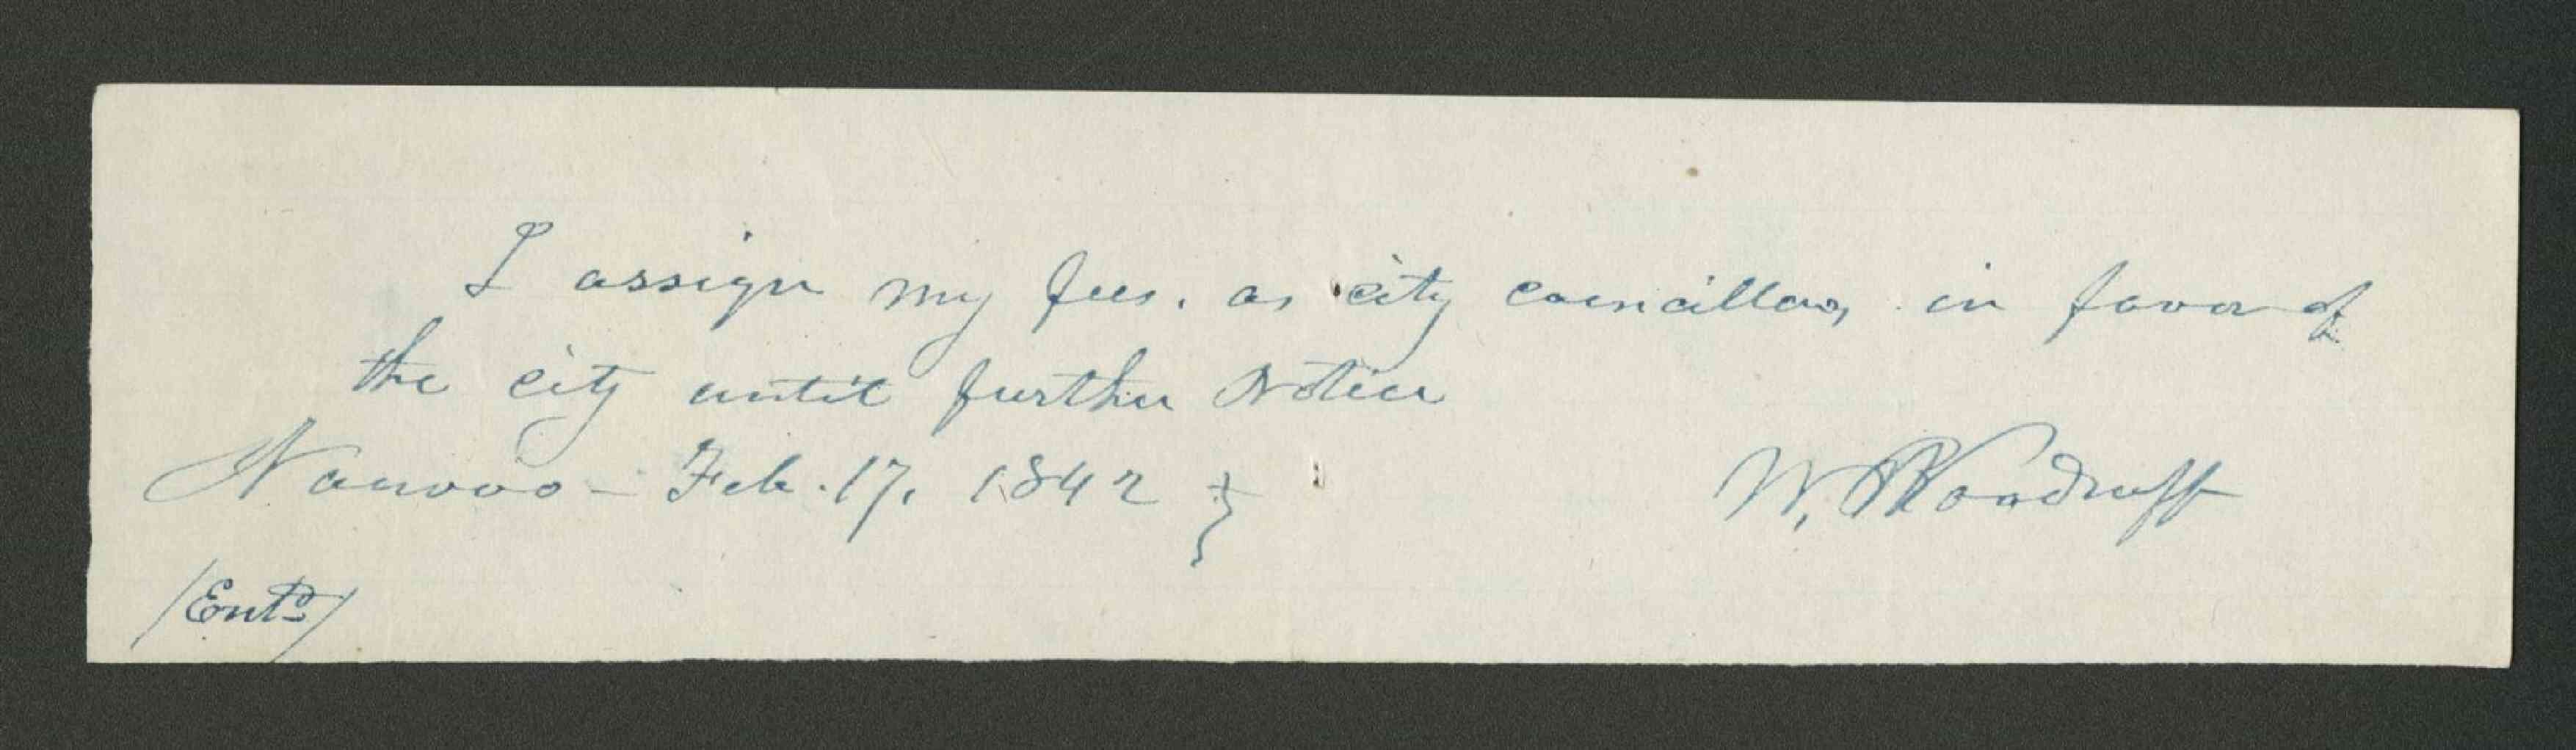 I assign my fees. as city councillor, in favor of
the city until further Notice
Nauvoo - Feb. 17, 1842 }
W. Woodruff
/Entd/